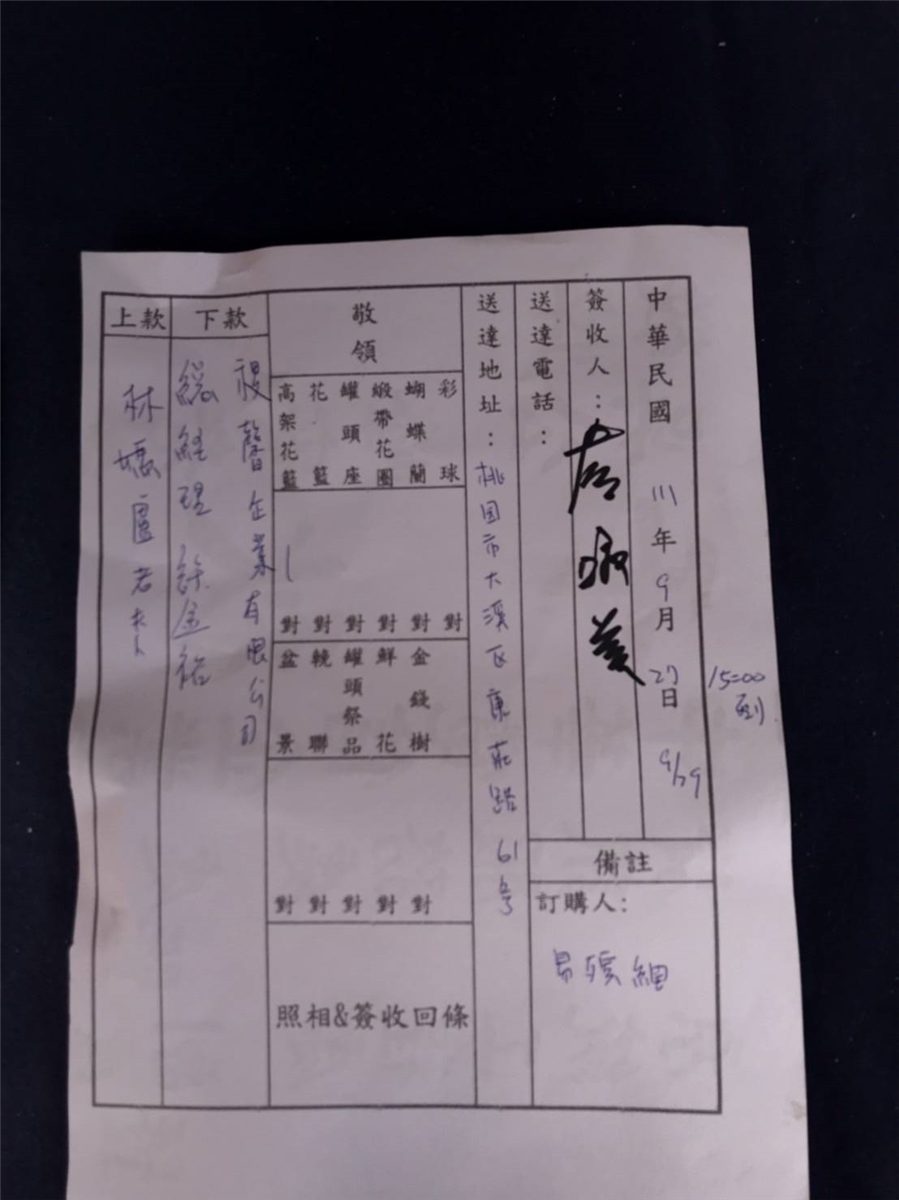 中華民國 111年 9月 27日 9/29
15:00到
簽收人：
送達電話：
送達地址：桃園市大溪區康莊路61号
備註
訂購人：
敬領
彩球
蝴蝶蘭
緞帶花圈
罐頭座
花籃
高架花籃
對 對 對 對 對 對
金錢樹
鮮花
罐頭祭品
輓聯
盆景
對 對 對 對 對
照相&簽收回條
下款
企業有限公司
總經理 許金裕
上款
林